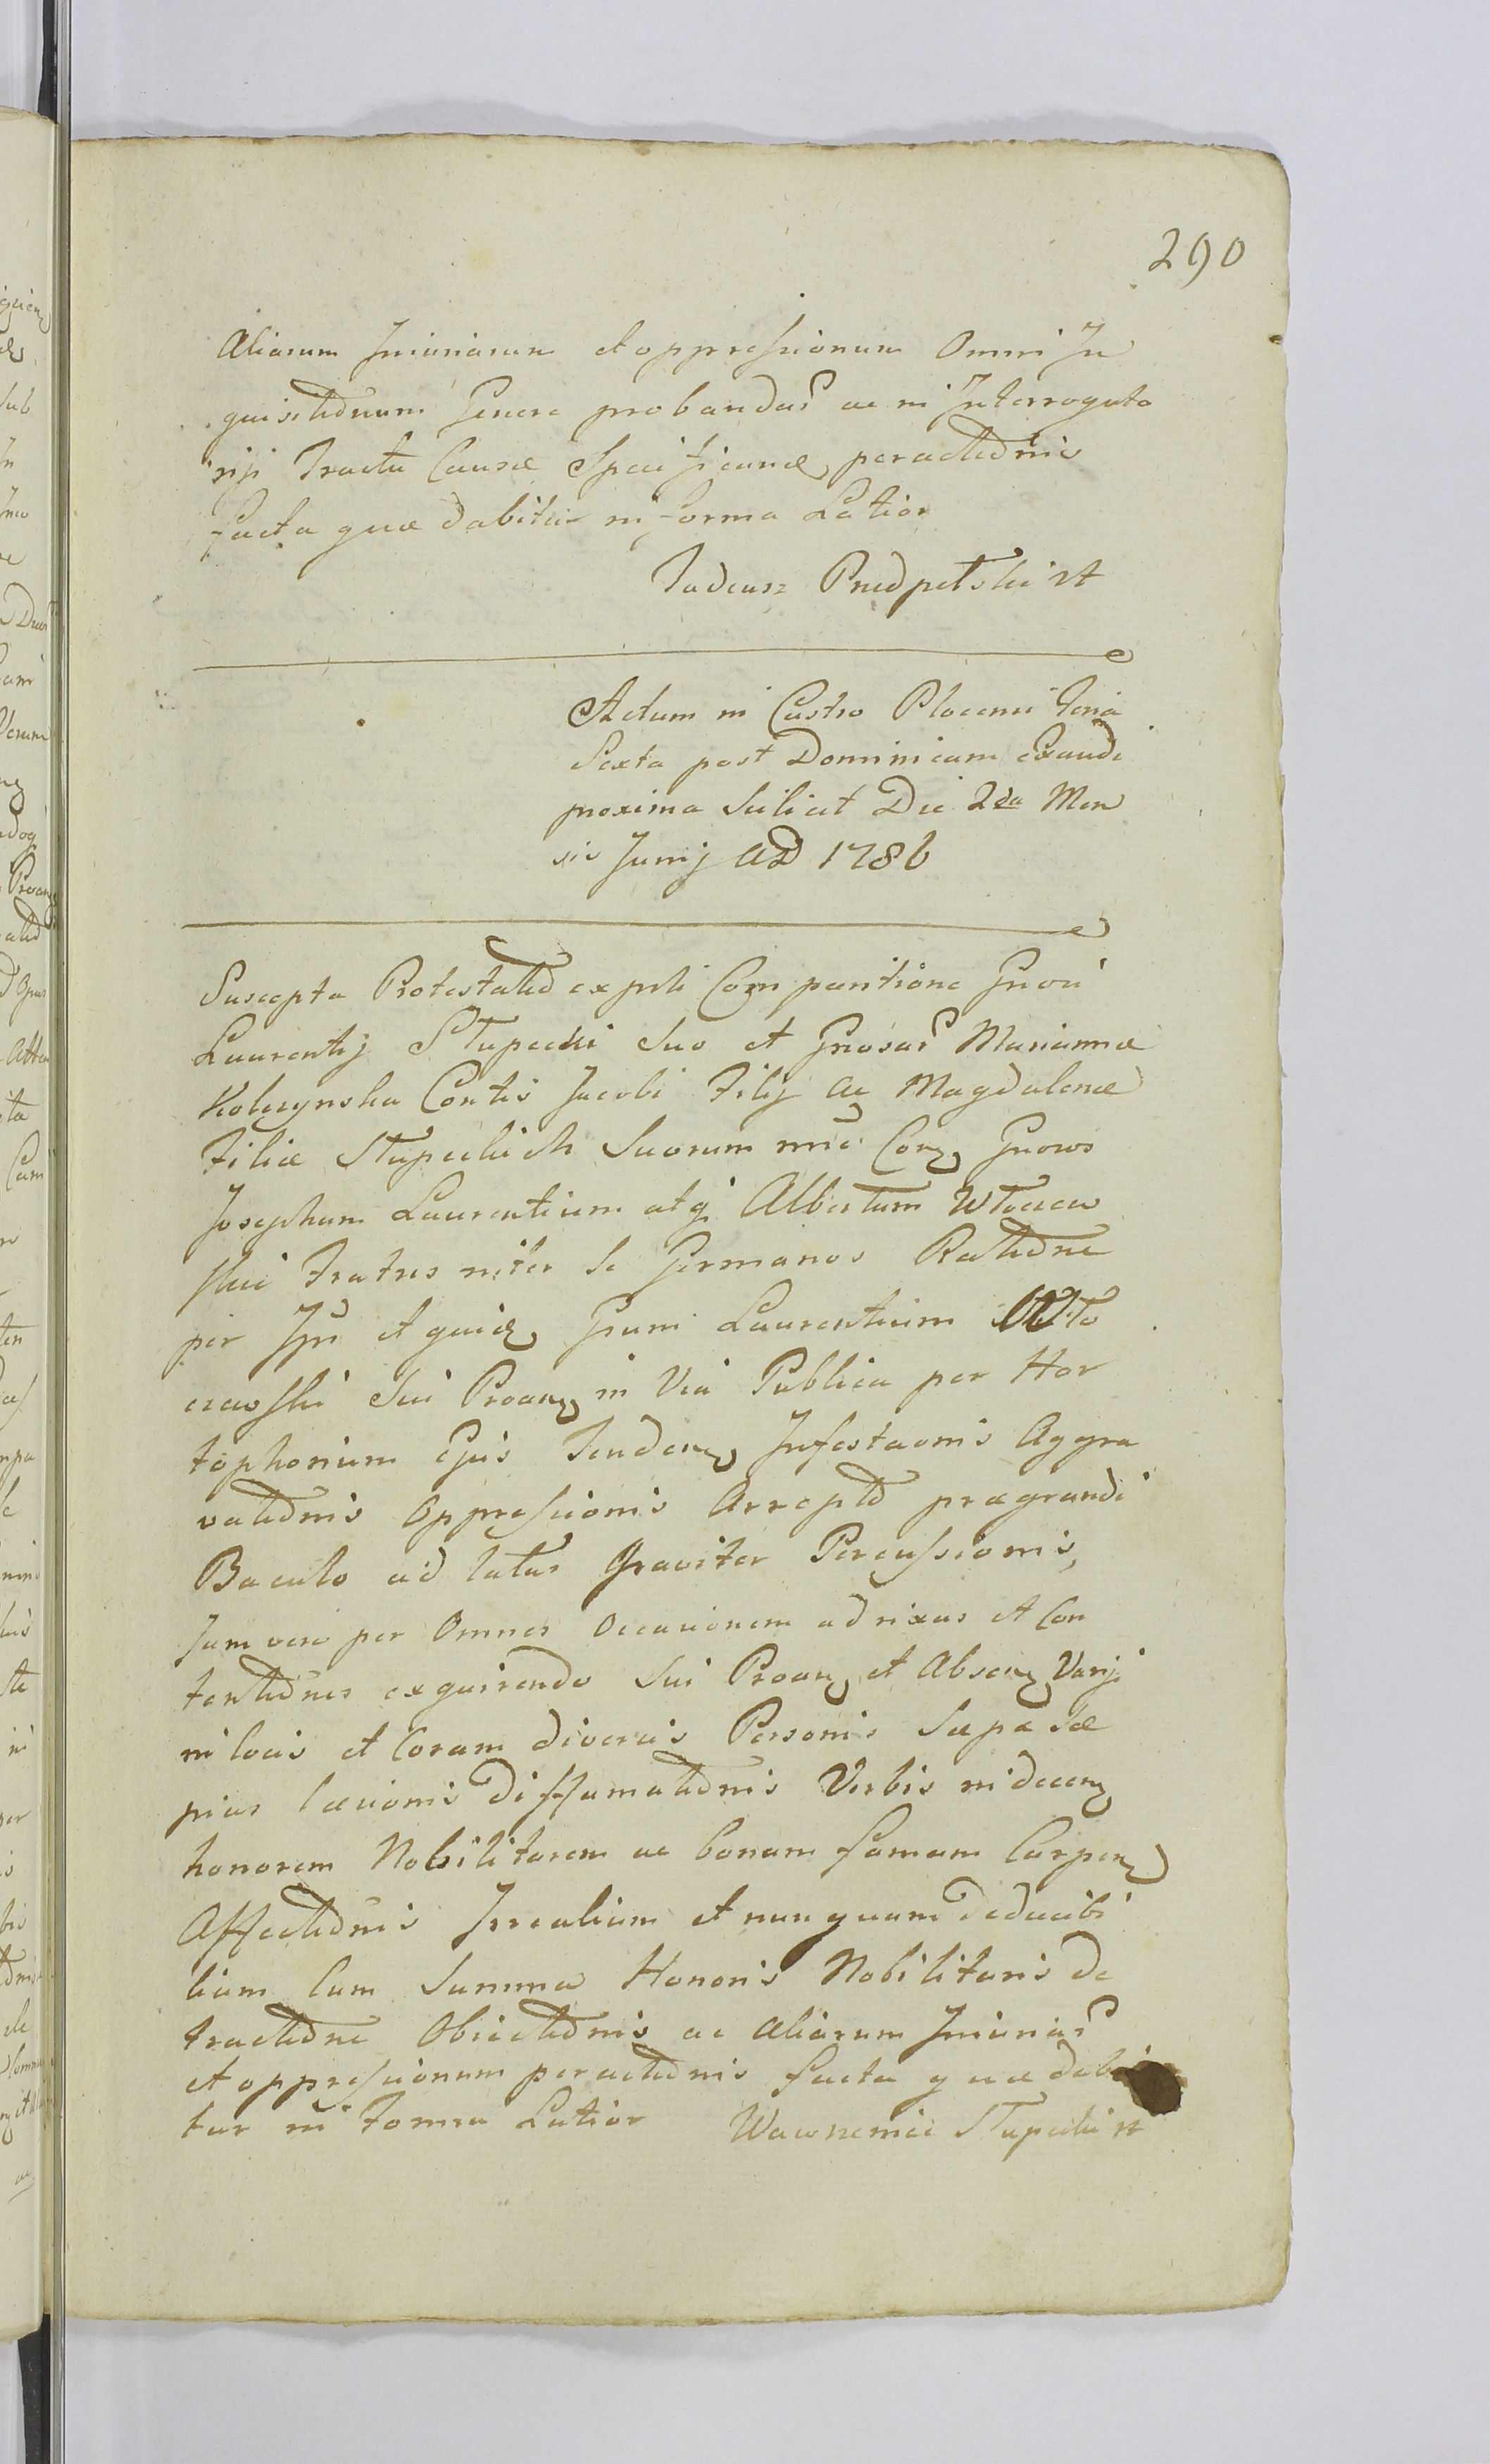 290
Aliarum Iniuriarum et oppressionum Omni In
quisitionum Genere probandar ac in Interrogato
rijs Tractu Causæ Specificanda peractionis
facta quæ dabitur in forma Latior
Tadeusz
Actum in Castro Plocensi Feria
Sexta post Dominicam Exaudi
proxima Scilicet Die 2da Men
sis Junij AD 1786
Suscepta Protestatio ex psli Comparitione Gnosi
Laurentij Stupecki Suo et Gnosar Mariannæ
Kolczynska Contis Jacobi Filij ac Magdalenæ
Filiæ Stupeckich Suorum nnie Con Gnosos
Josephum Laurentium atq Albertum Wloczew
ski Fratres inter se Germanos Ratione
per Ipn et quid Gnum Laurentium Wlo
czewski Sui Proan in Via Publica per Hor
tophorium Ejus Tenden Infestaonis Aggra
vationis Oppressionis Arrepto prægrandi
Baculo ad latus Graviter Percussionis,
Jam vero per Omnes Occasionem ad rixas et Con
tentiones exquirendo Sui Proan et Absen Varij
in locis et Coram diversis Personis Sæpe sæ
pius læsionis Diffamationis Verbis indecen
honorem Nobilitarem ac bonam famam Carpen
Affectionis Irrealium et nunquam deducibi
lium Cum Summa Honoris Nobilitaris de
tractione Obiectionis ac Aliarum Iniuriar
et oppressionum peractionis facta quæ dabi
tur in Forma Latior Wawrzeniec Stupecki